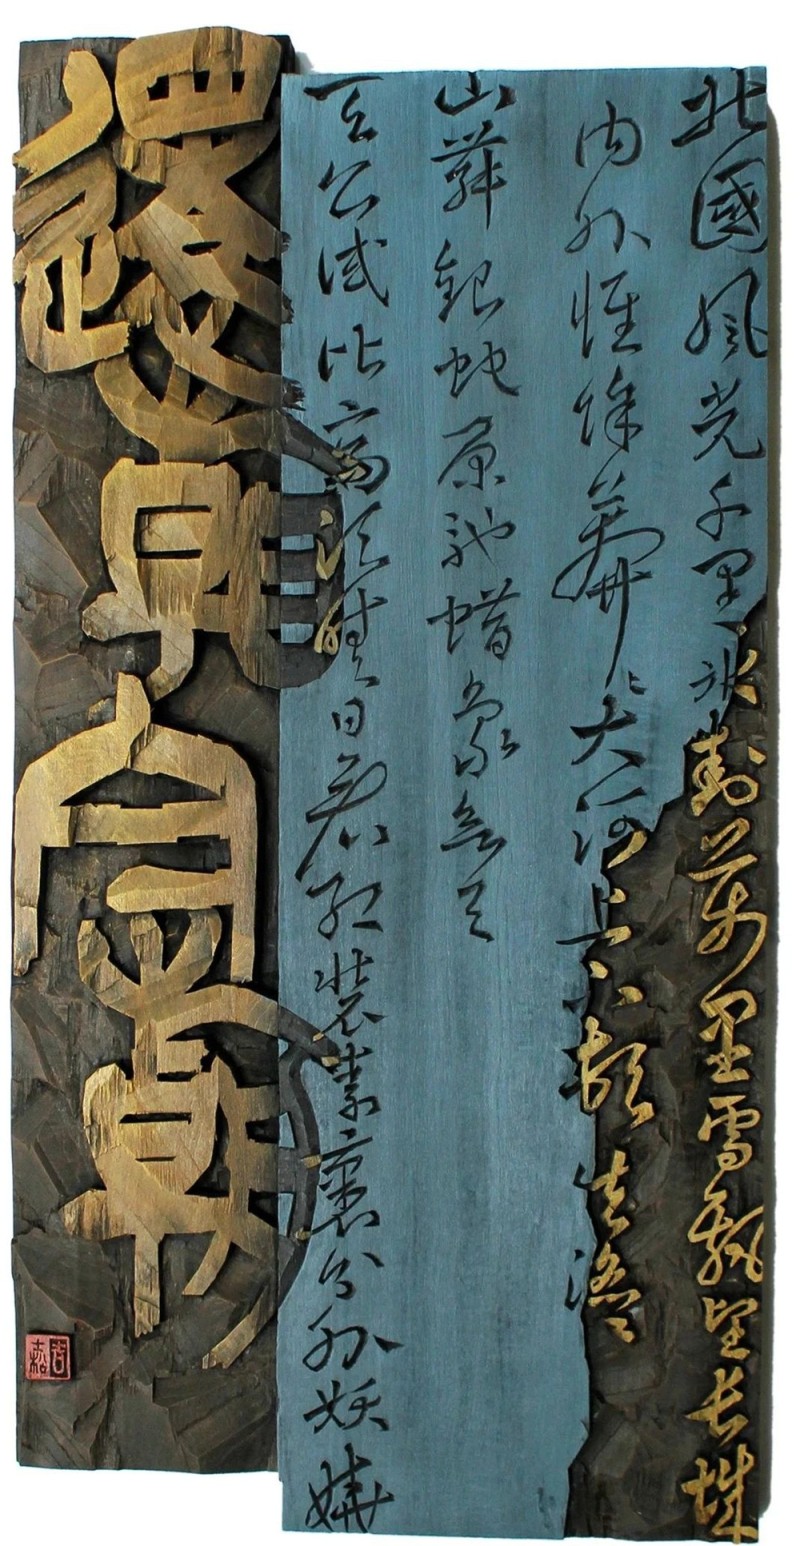 北國風光千里冰封萬里雪飄望長城
內外惟餘莽〻大河上下頓失滔〻
山舞銀蛇原馳蜡象
天公試比高須晴日看紅裝素裹分外妖嬈